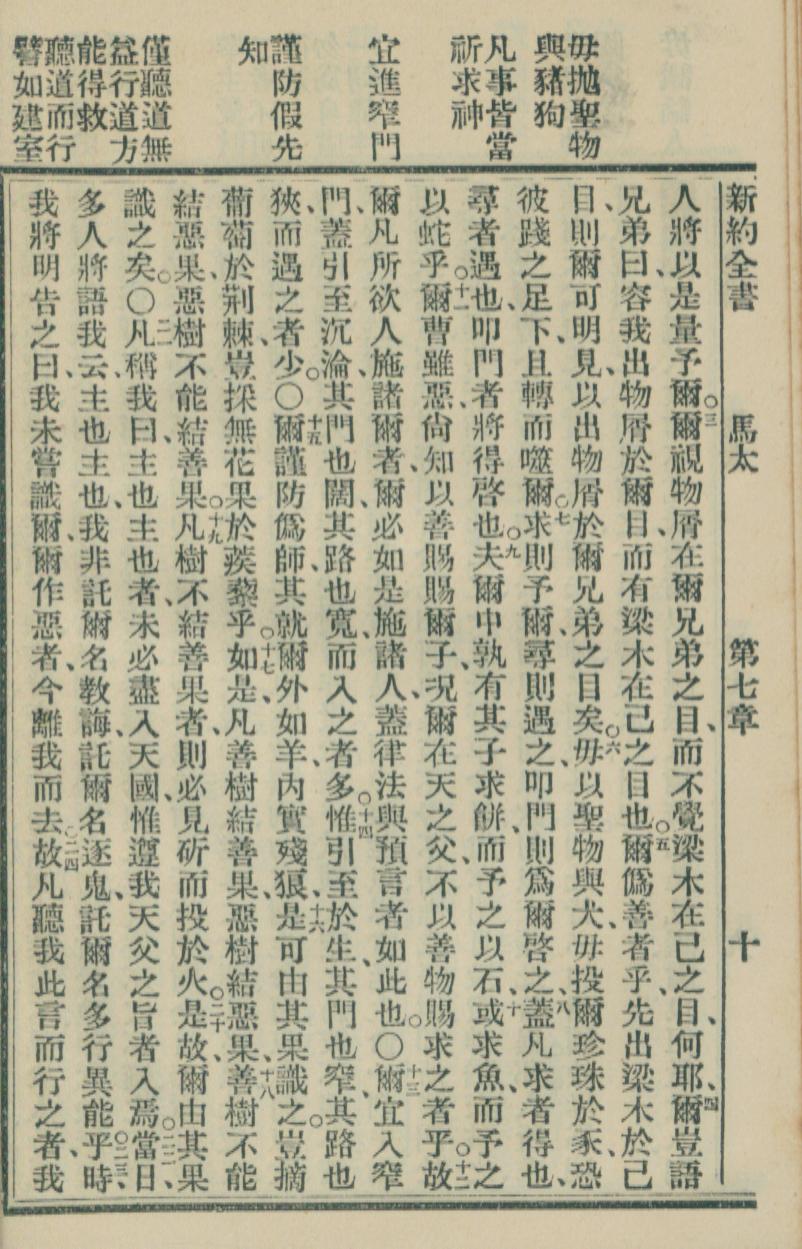 新約全書 馬太 第七章 十
毋拋聖物
與豬狗
凡事皆當
祈求神
宜進窄門
謹防假先
知
僅聽道無
益行道方
能得救
聽道而行
譬如建室
人將以是量予爾○三爾視物屑在爾兄弟之目、而不覺梁木在己之目、何耶、四爾豈語
兄弟曰、容我出物屑於爾目、而有梁木在己之目也○五爾僞善者乎、先出梁木於己
目、則爾可明見、以出物屑於爾兄弟之目矣○六毋以聖物與犬、毋投爾珍珠於豕、恐
彼踐之足下、且轉而噬爾○七求則予爾、尋則遇之、叩門則爲爾啓之、八蓋凡求者得也、
尋者遇也、叩門者將得啓也○九夫爾中孰有其子求餅、而予之以石、十或求魚、而予之
以蛇乎○十一爾曹雖惡、尙知以善賜賜爾子、況爾在天之父、不以善物賜求之者乎○十二故
爾凡所欲人施諸爾者、爾必如是施諸人、蓋律法與預言者如此也○〇十三爾宜入窄
門、蓋引至沉淪、其門也闊、其路也寬、而入之者多○十四惟引至於生、其門也窄、其路也
狹、而遇之者少○〇十五爾謹防僞師、其就爾外如羊、內實殘狼、十六是可由其果識之○豈摘
葡萄於荆棘、豈採無花果於蒺藜乎○十七如是、凡善樹結善果、惡樹結惡果、十八善樹不能
結惡果、惡樹不能結善果○十九凡樹不結善果者、則必見斫而投於火○二十是故、爾由其果
識之矣○〇二一凡稱我曰、主也主也者、未必盡入天國、惟遵我天父之旨者入焉○二二當日、
多人將語我云、主也主也、我非託爾名敎誨、託爾名逐鬼、託爾名多行異能乎○二三時、
我將明告之曰、我未嘗識爾、爾作惡者、今離我而去○二四故凡聽我此言而行之者、我